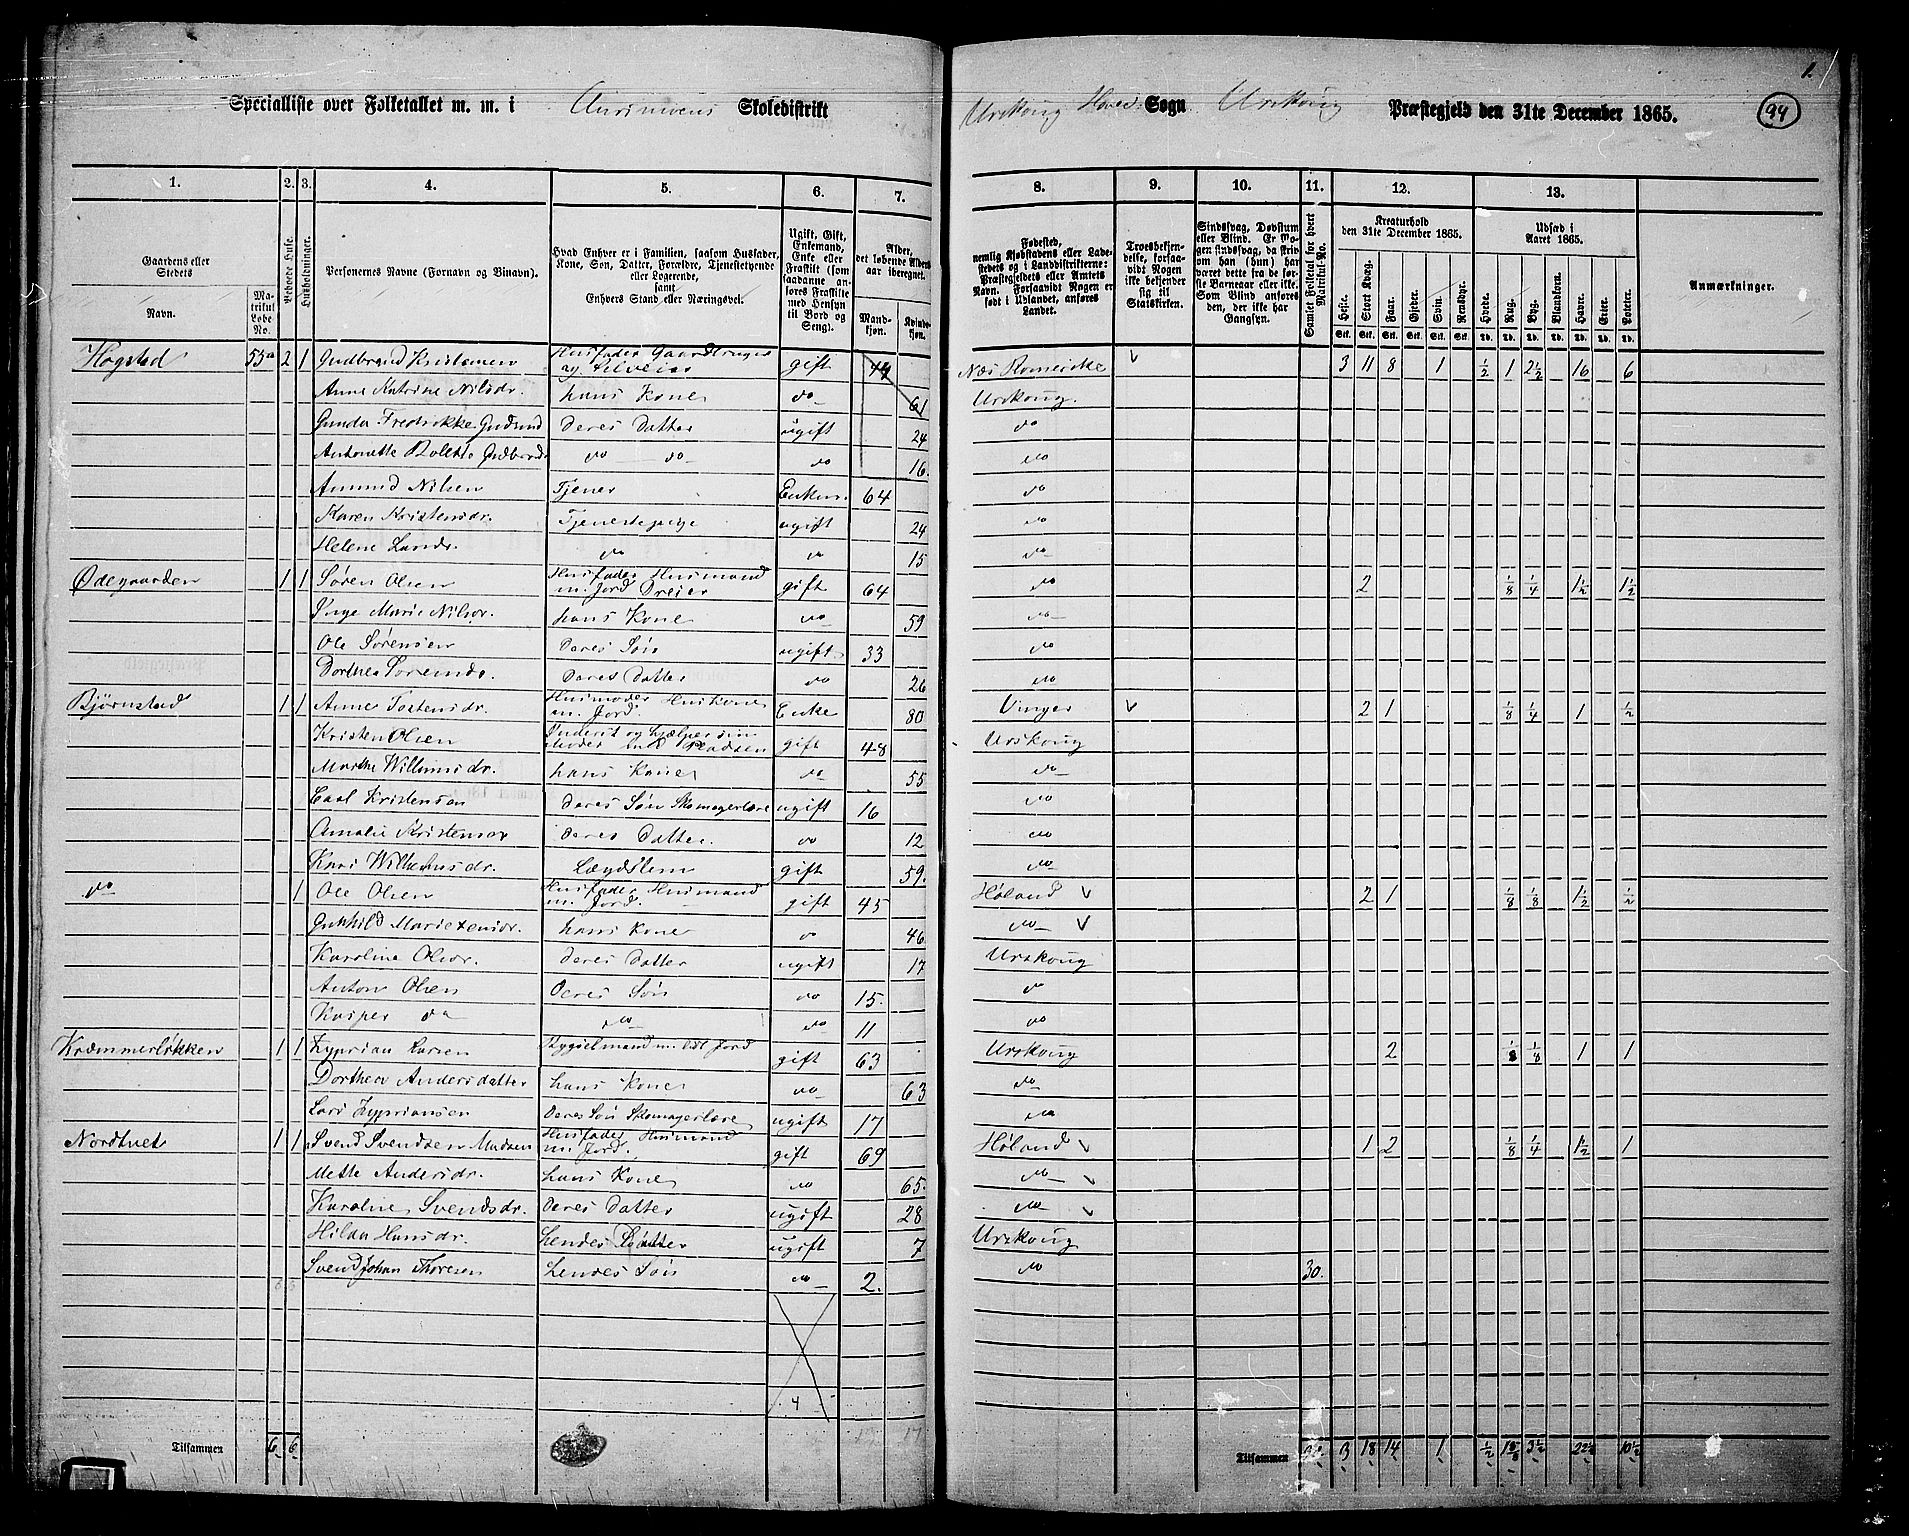 1.
Specialliste over Folketallet m. m. i Aursmoens Skoledistrikt Urskoug Hoved Sogn Urskoug Præstegjeld den 31te December 1865. 94
1. 2. 3. 4. 5. 6. 7. 8. 9. 10. 11. 12. 13.
Gaardens eller Stedets Navn. Matrikul Løbe No. Beboede Huse. Husholdninger. Personernes Navne (Fornavn og Binavn). Hvad Enhver er i Familien, saasom Husfader, Kone, Søn, Datter, Forældre, Tjenestetyende eller Logerende, samt Enhvers Stand eller Næringsvei. Ugift, Gift, Enkemand, Enke eller Fraskilt (som saadanne anføres Fraskilte med Hensyn til Bord og Seng). Alder, det løbende Aldersaar iberegnet. Mandkjøn. Kvindekjøn.
Fødested, nemlig Kjøbstadens eller Ladestedets og i Landdistrikterne: Præstegjeldets eller Amtets Navn. Forsaavidt Nogen er født i Udlandet, anføres Landet. Troesbekjendelse, forsaavidt Nogen ikke bekjender sig til Statskirken. Sindssvag, Døvstum eller Blind. Er Nogen sindssvag, da skrives om han (hun) har været dette fra de første Barneaar eller ikke. Som Blind anføres den, der ikke har Gangsyn. Samlet Folketal for hvert Matrikul No. Kreaturhold den 31te December 1865. Heste. Stort Kvæg. Faar. Gjeder. Svin. Rensdyr. Udsæd i Aaret 1865. Hvede. Rug. Byg. Blandkorn. Havre. Erter. Poteter. Anmærkninger.
Hogstad 55a 2 1 Gudbrand Kristensen Husfader Gaardbruger og Selveier gift 44 Næs Romerike 3 11 8 1 1/2 1 2 1/2 16 6
Anne Katrine Nilsdr. hans Kone do 61 Urskoug.
Gunda Fredrikke Gudbrand Deres Datter ugift 24 do
Antonette Bolette Gudbrands do do do 16. do
Amund Nilsen Tjener Enkem. 64 do
Karen Kristensdr. Tjenestepige ugift 24 do
Helene Larsdr. do do 15 do
Ødegaarden 1 1 Søren Olsen Husfader Husmand m. Jord Dreier gift 64 do 2 1/8 1/4 1 1/2 1 1/2
Inge Marie Nilsdr. hans Kone do 59 do
Ole Sørensen Deres Søn ugift 33 do
Dorthea Sørensdr. Deres Datter do 26 do
Bjørnstad 1 1 Anne Tostensdr. Husmoder Huskone m. Jord. Enke 80 Vinger 2 1 1/8 1/4 1 1/2
Kristen Olsen gift 48 Urskoug
Marthe Willumsdr. hans Kone do 55 do
Carl Kristensen Deres Søn Skomagerlære ugift 16 do
Amalie Kristensdr Deres Datter. do 12 do
Kari Wilhelmsdr. Lægdslem gift 59. do
do 1 Ole Olsen Husfader Husmand m. Jord. gift 45 Høland 2 1 1/8 1/8 1 1/2 1/2
Gunhild hans Kone do 46 do
Karoline Olsdr. Deres Datter ugift 17 Urskoug
Anton Olsen Deres Søn do 15. do
Kasper do do do 11 do
Kræmmerløkken 1 1 Zyprian Larsen Bygselmand m. lidt Jord gift 63 Urskoug 2 1/8 1/8 1 1
Dorthea Andersdatter hans Kone do 63 do
Lars Zypriansen Deres Søn Skomagerlære ugift 17 do
Nordtvet 1 1 Svend Svendsen Madsen Husfader Husmand m. Jord. gift 69 Høland 1 2 1/8 1/4 1 1/2 1
Mette Andersdr. hans Kone do 65. do
Karoline Svendsdr. Deres Datter ugift 28 do
Hilda Hansdr. hendes Datter ugift 7 Urskoug
Svend Johan Thoresen hendes Søn do 2. do 30.
4
Tilsammen 6 6 17
Tilsammen 30 3 18 14 1 1/2 1 5/8 3 1/2 22 1/2 10 1/2